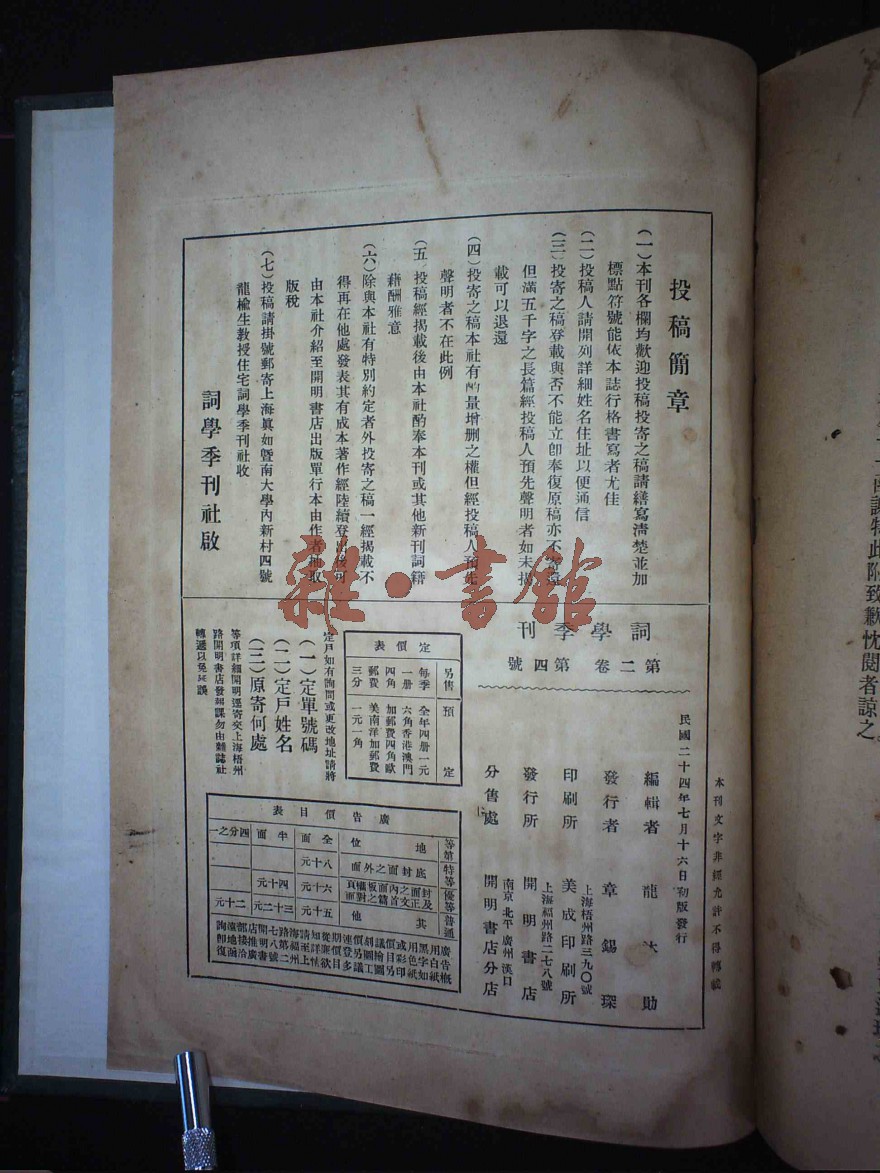 投稿簡章
(一)本刊各欄均歡迎投稿投寄之稿請繕寫清楚並加
標點符號能依本誌行格書寫者尤佳
(二)投稿人請開列詳細姓名住址以便通信
(三)投寄之稿登載與否不能立卽奉復原稿亦不寄還
但滿五千字之長篇經投稿人預先聲明者如未揭
載可以退還
(四)投寄之稿本社有酌量增删之權但經投稿人預先
聲明者不在此例
(五)投稿經揭載後由本社酌奉本刊或其他新刊詞籍
藉酬雅意
(六)除與本社有特別約定者外投寄之稿一經揭載不
得再在他處發表其有成本著作經陸續登出後可
由本社介紹至開明書店出版單行本由作者抽取
版稅
(七)投稿請掛號郵寄上海眞如暨南大學內新村四號
龍楡生教授住宅詞學季刊社收
詞學季刊社啟
雜·書館
本刊文字非經允許不得轉載
民國二十四年七月十六日初版發行
詞學季刊
第二卷第四號
編輯者 龍沐勛
發行者 章錫琛
上海梧州路三九〇號
印刷所 美成印刷所
上海福州路二七八號
發行所 開明書店
南京北平廣州漢口
分售處 開明書店分店
定價表
另售 預定
每季一册四角郵費三分
全年四册一元六角香港澳門加郵費四角歐美南洋加郵費一元一角
定戶如有詢問或更改地址請將
(一)定單號碼
(二)定戶姓名
(三)原寄何處
等項詳細開明逕寄交上海梧州
路開明書店發報課勿由雜誌社
轉遞以免延誤
廣告價目表
等第 地位 全面 半面 四分之一
特等 底封面之外面 八十元
優等 封面之內面及正文首篇之對面 六十元 四十元
普通 其他 五十元 三十二元 二十元
廣告槪用白紙黑字如用色紙或彩印價目另議繪圖刻工